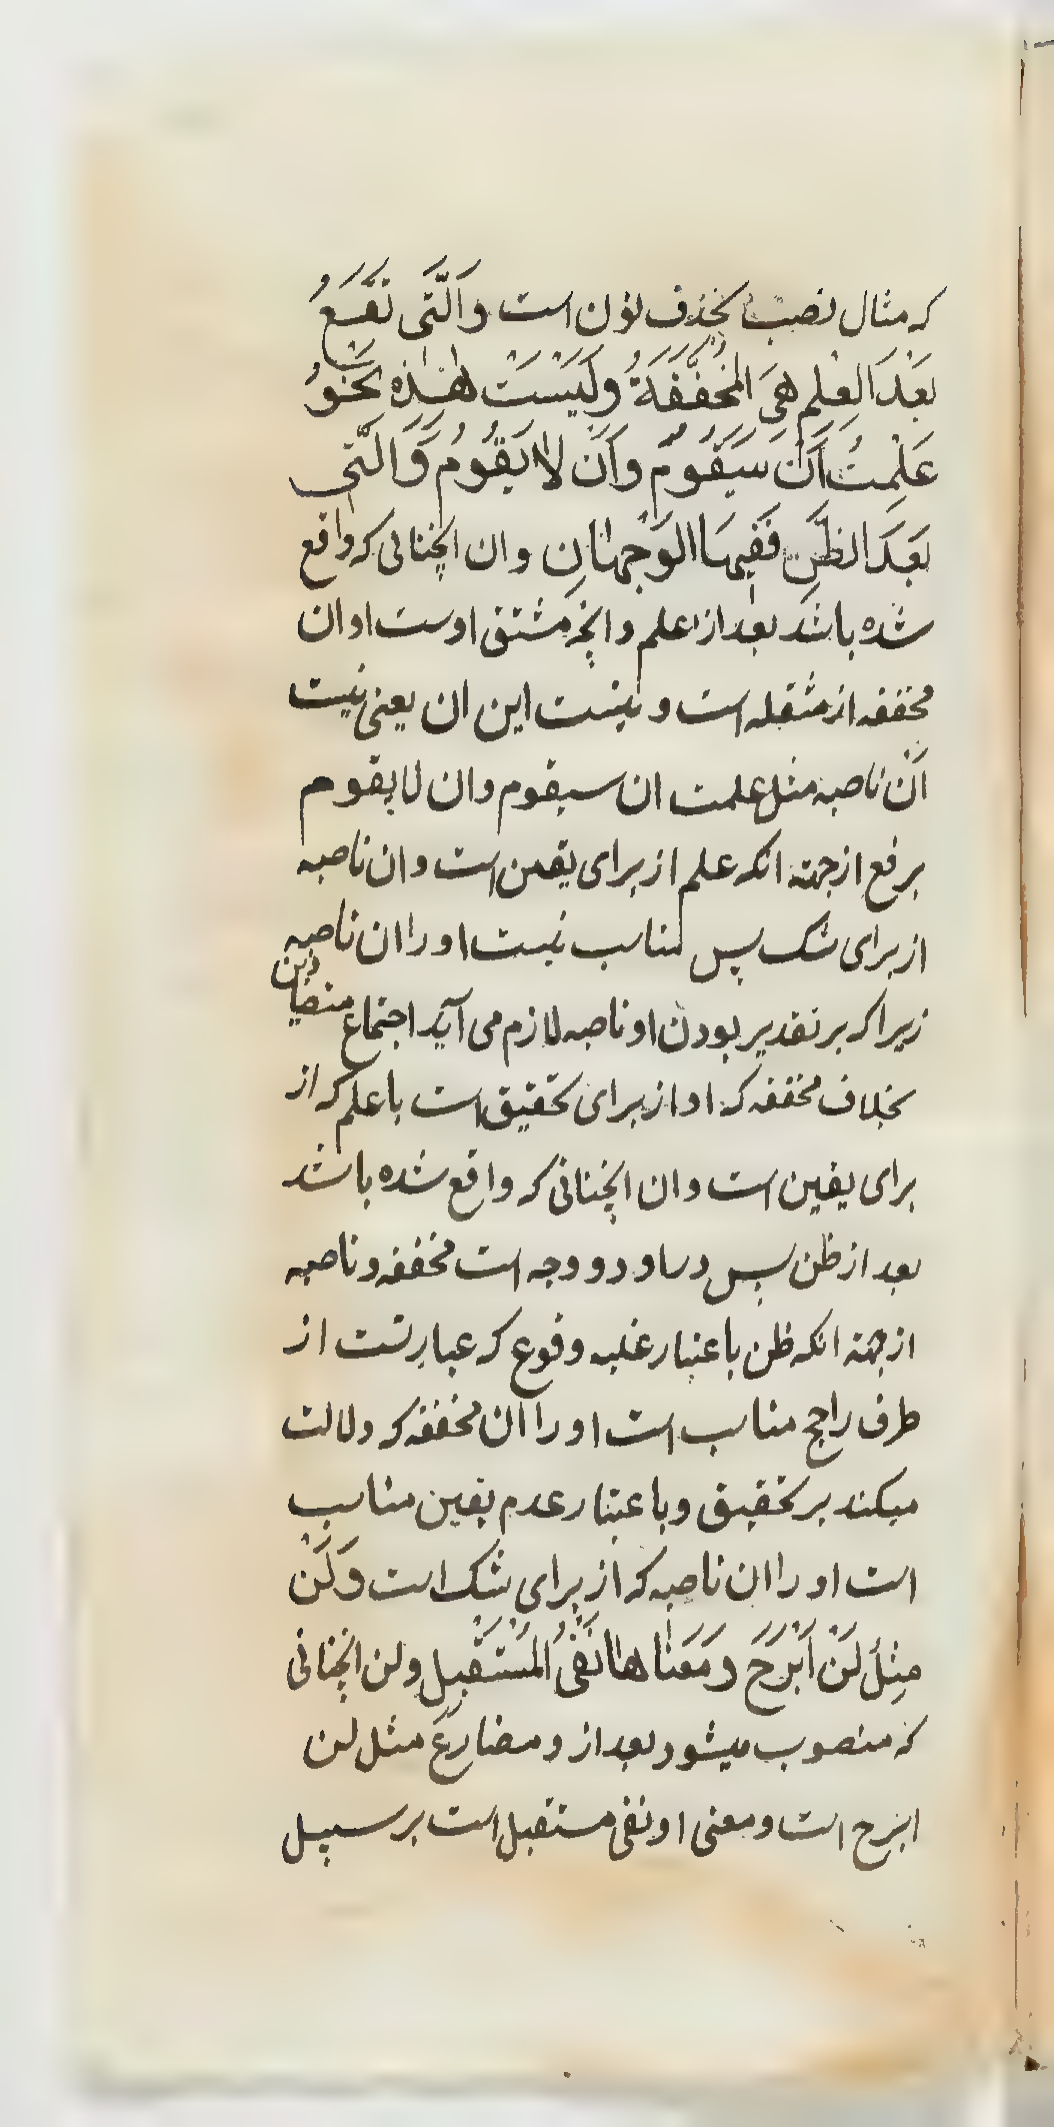 که مثال نصب بحذف نون است وَالَّتی تَقَعُ
بَعْدَ العِلْمِ هِیَ المُخَفَّفَةُ وَلَیْسَتْ هٰذِهِ نَحْوُ
عَلِمْتُ اَنْ سَیَقُوْمُ وَاَنْ لا یَقُوْمُ وَالَّتی
بَعْدَ الظَّنِّ فَفیهَا الوَجْهانِ وان انچنانی که واقع
شده باشد بعد از علم وانچه مشتق اوست او ان
مخففه از مثقله است و نیست این ان یعنی نیست
اَنْ ناصبه مثل علمت ان سیقوم وان لا یقوم
برفع از جهته انکه علم از برای یقین است وان ناصبه
از برای شک پس مناسب نیست او را ان ناصبه
زیرا که بر تقدیر بودن او ناصبه لازم می آید اجتماع متضادین
بخلاف مخففه که او از برای تحقیق است با علم که از
برای یقین است وان انچنانی که واقع شده باشد
بعد از ظن پس در او دو وجه است مخففه و ناصبه
از جهته انکه ظن باعتبار غلبه وقوع که عبارتست از
طرف راجح مناسب است او را ان مخففه که دلالت
میکند بر تحقیق وباعتبار عدم یقین مناسب
است او را ان ناصبه که از برای شک است وَلَنْ
مِثْلُ لَنْ اَبْرَحَ وَمَعْناها نَفْیُ المُسْتَقْبِلِ ولن انچنانی
که منصوب میشود بعد از و مضارع مثل لن
ابرح است ومعنی او نفی مستقبل است بر سبیل